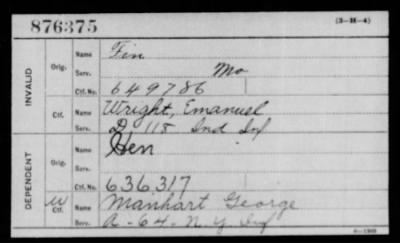 876375
(3-H-4)
INVALID
Orig.
Name Fin
Serv. Mo
Ctf. No. 649786
Ctf.
Name Wright, Emanuel
Serv. D. 118 Ind Inf
DEPENDENT
Orig.
Name Hen
Serv.
Ctf. No. 636317
W
Ctf.
Name Manhart George
Serv. A-64-N.Y. Inf